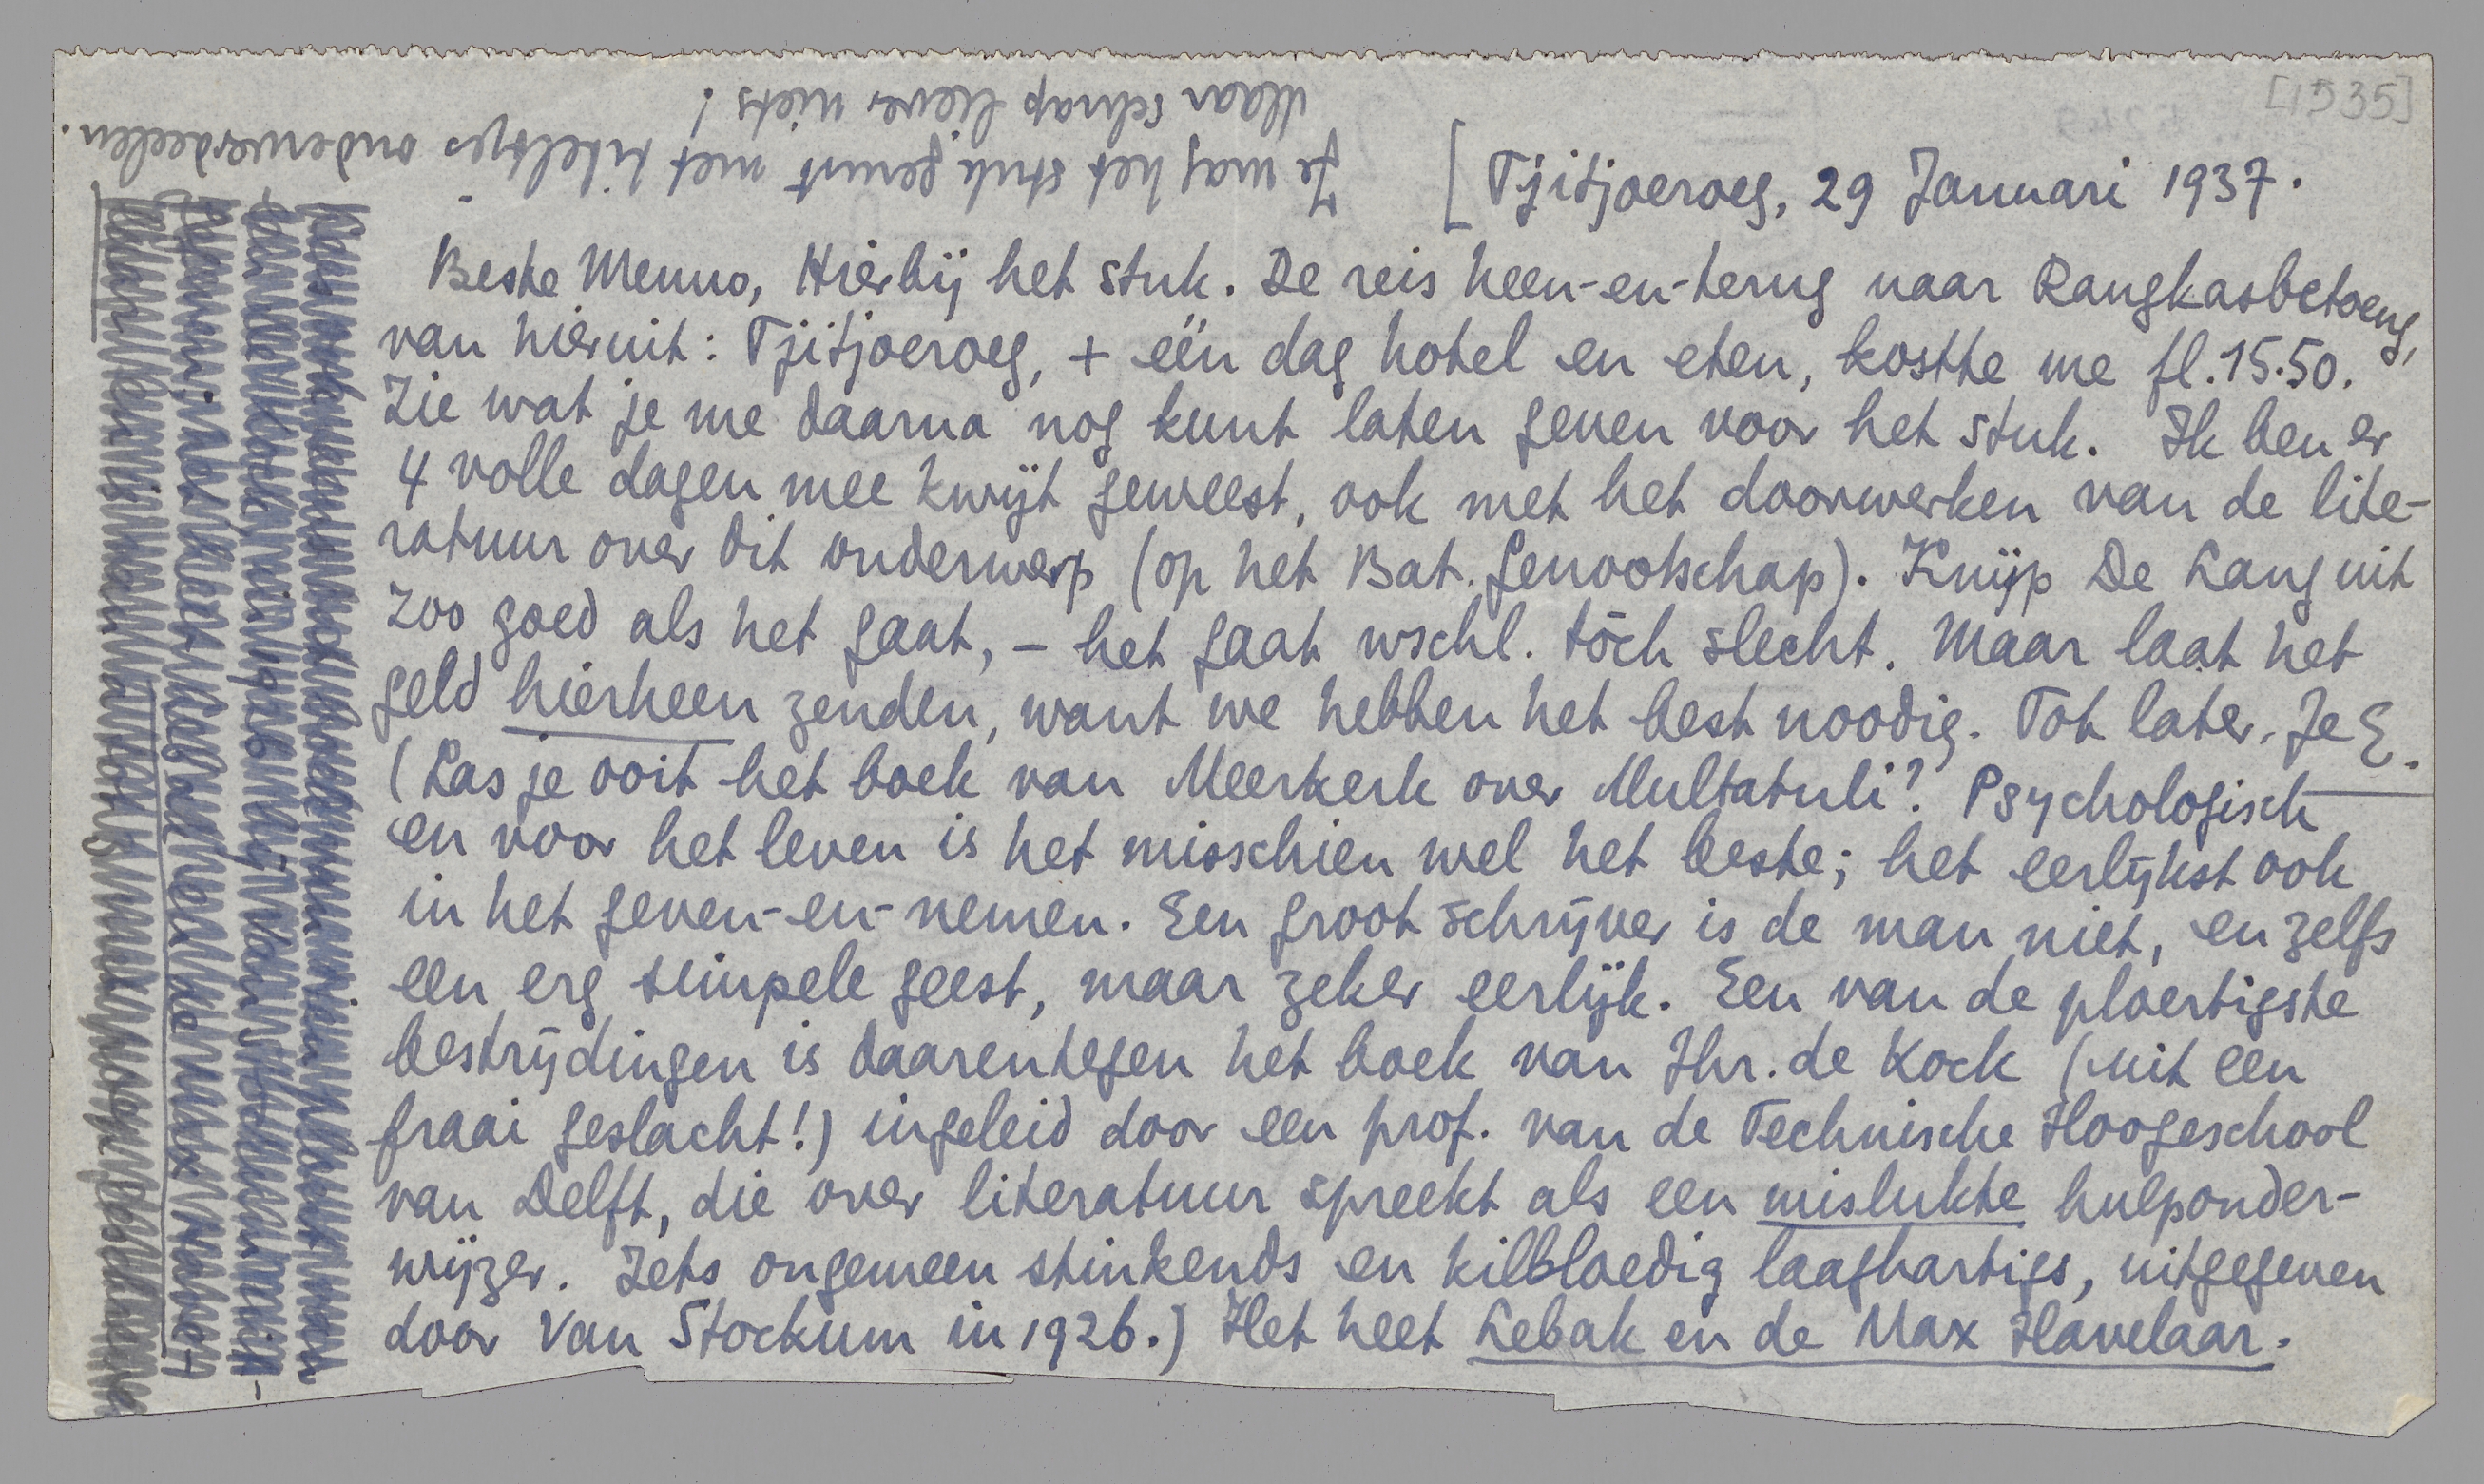 [1535]
Je mag het stuk gerust met titeltjes onderverdeelen.
Maar schrap liever niets!
[Tjitjoeroeg, 29 Januari 1937.
Beste Menno, Hierbij het stuk. De reis heen-en-terug naar Rangkasbetoeng,
van hieruit: Tjitjoeroeg, + één dag hotel en eten, kostte me fl. 15.50.
Zie wat je me daarna nog kunt laten geven voor het stuk. Ik ben er
4 volle dagen mee kwijt geweest, ook met het doorwerken van de lite-
ratuur over dit onderwerp (op het Bat. Genootschap). Knijp De Lang uit
zoo goed als het gaat, – het gaat wschl. tòch slecht. Maar laat het
geld hierheen zenden, want we hebben het best noodig. Tot later. Je E.
(Las je ooit het boek van Meerkerk over Multatuli? Psychologisch
en voor het leven is het misschien wel het beste; het eerlijkst ook
in het geven-en-nemen. Een groot schrijver is de man niet, en zelfs
een erg simpele geest, maar zeker eerlijk. Een van de ploertigste
bestrijdingen is daarentegen het boek van Jhr. de Kock (uit een
fraai geslacht!) ingeleid door een prof. van de Technische Hoogeschool
van Delft, die over literatuur spreekt als een mislukte hulponder-
wijzer. Iets ongemeen stinkends en kilbloedig laaghartigs, uitgegeven
door Van Stockum in 1926.) Het heet Lebak en de Max Havelaar.